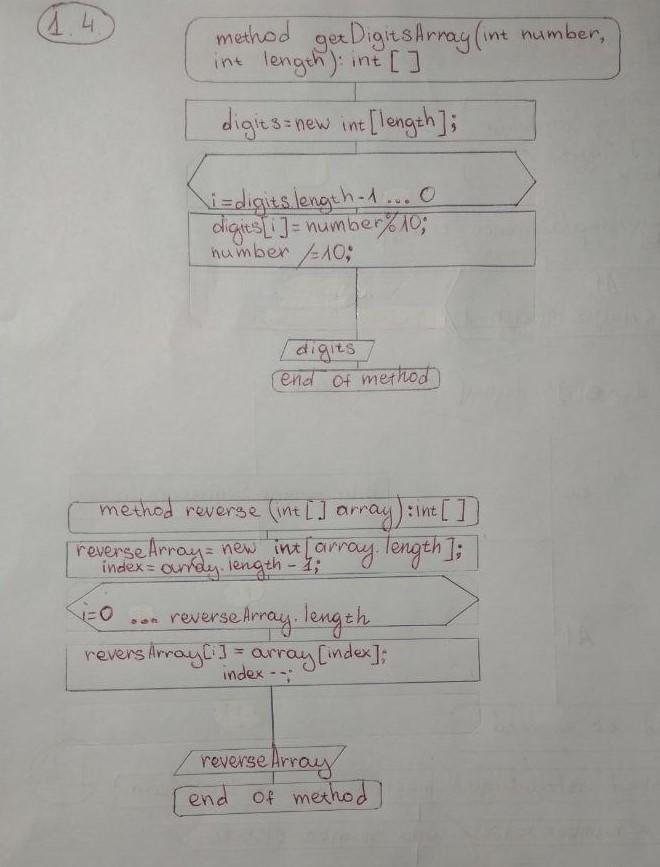 1.4.
method getDigitsArray(int number,
int length): int [ ]
digits=new int[length];
i=digits.length-1 ... 0
digits[i]=number%10;
number /=10;
digits
end of method
method reverse (int[] array):int[]
reverseArray= new int[array.length];
index=array.length - 1;
i=0 ... reverseArray.length
reversArray[i] = array[index];
index --;
reverseArray
end of method